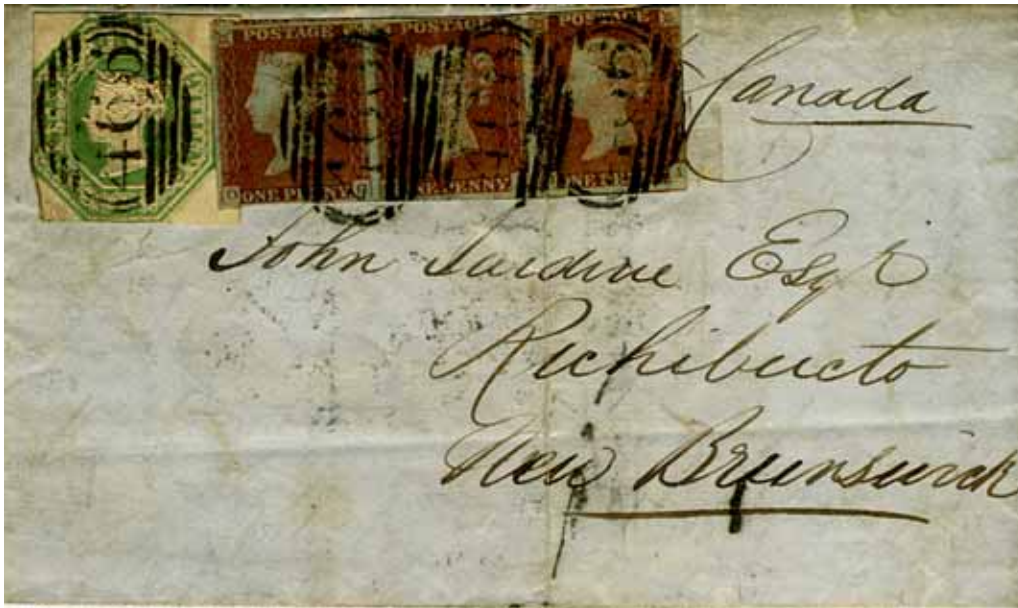 POSTAGE POSTAGE POSTAGE
ONE PENNY ONE PENNY
Canada
John Jardine Esqr
Richibucto
New Brunswick